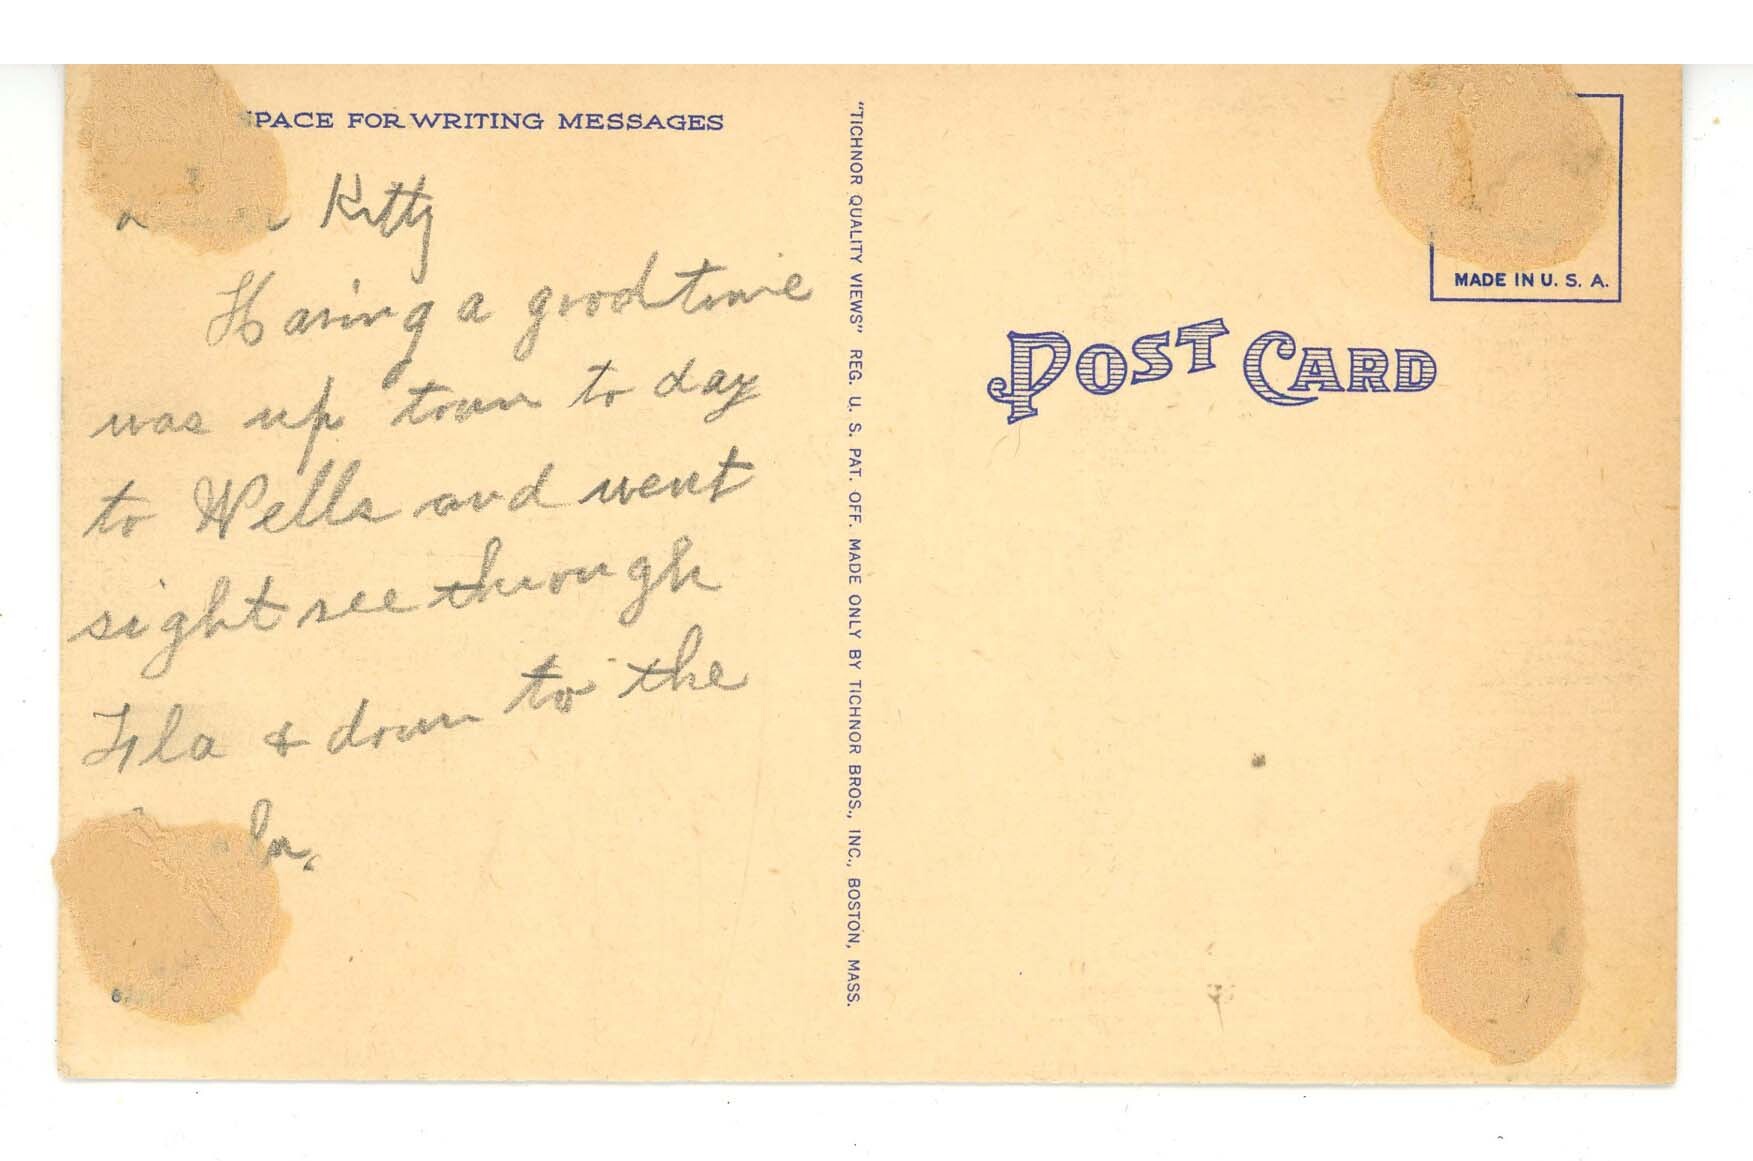 PACE FOR WRITING MESSAGES
Kitty
Having a good time
was up town to day
to Wells and went
sight see through
Fla & down to the
"TICHNOR QUALITY VIEWS" REG. U. S. PAT. OFF. MADE ONLY BY TICHNOR BROS., INC., BOSTON, MASS.
MADE IN U. S. A.
POST CARD